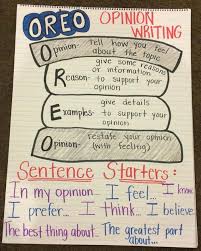 OREO OPINION
WRITING
Opinion- tell how you feel
about the topic
Reason- give some reasons
or information
to support your
opinion
Examples- give details
to support your
opinion
Opinion- restate your opinion
(with feeling)
Sentence Starters:
In my opinion... I feel... I know
I prefer... I think... I believe
The best thing about... The greatest part
about...